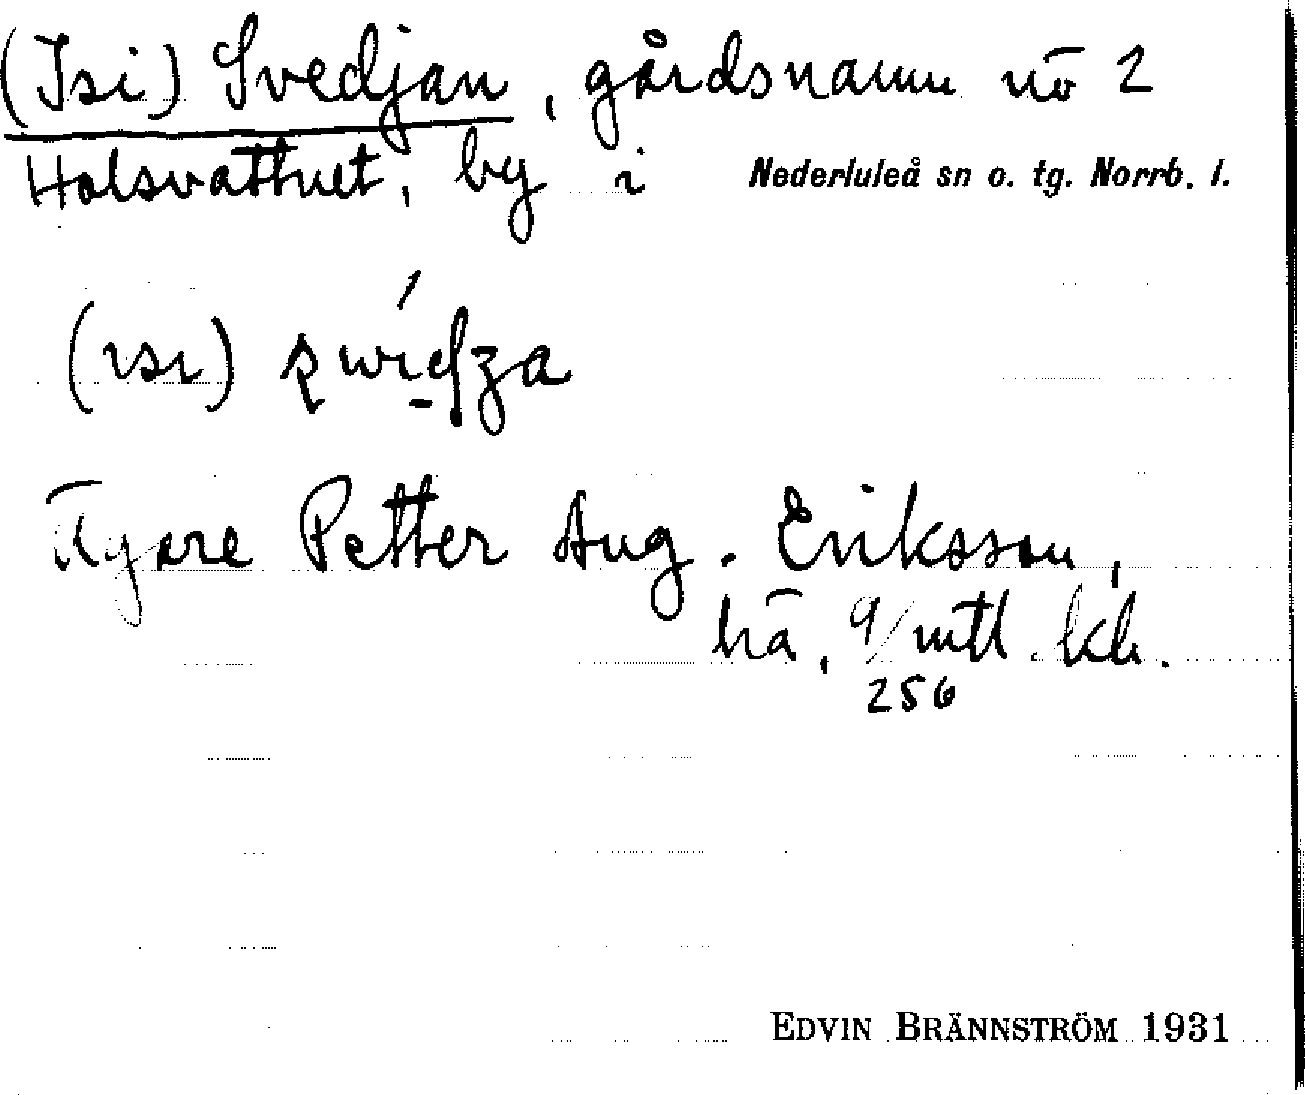 (Isi) Svedjan, gårdsnamn nō 2
Holsvattnet, by i Nederluleå sn o. tg. Norrb. l.
(ısı)
Ägare Petter Aug. Eriksson,
hä, 9/256 mtl kh.
EDVIN BRÄNNSTRÖM 1931